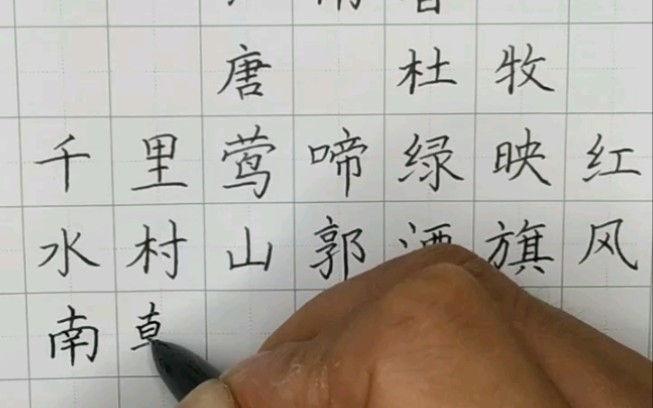 唐 杜牧
千里莺啼绿映红
水村山郭酒旗风
南